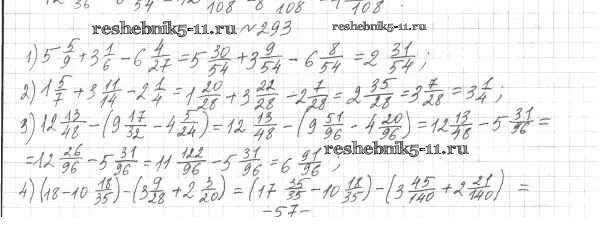 36 54 108 8 108 108
reshebnik5-11.ru №293 reshebnik5-11.ru
1) 5 5/9 + 3 1/6 - 6 4/27 = 5 30/54 + 3 9/54 - 6 8/54 = 2 31/54 ;
2) 1 5/7 + 3 11/14 - 2 1/4 = 1 20/28 + 3 22/28 - 2 7/28 = 2 35/28 = 3 7/28 = 3 1/4 ;
3) 12 13/48 - (9 17/32 - 4 5/24) = 12 13/48 - (9 51/96 - 4 20/96) = 12 13/48 - 5 31/96 =
reshebnik5-11.ru
= 12 26/96 - 5 31/96 = 11 122/96 - 5 31/96 = 6 91/96 ;
4) (18 - 10 18/35) - (3 9/28 + 2 3/20) = (17 35/35 - 10 18/35) - (3 45/140 + 2 21/140) =
-57-